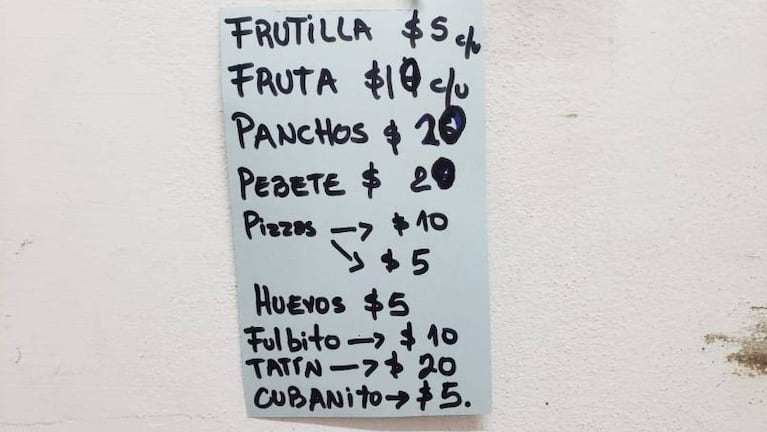 FRUTILLA $5 c/u
FRUTA $10 c/u
PANCHOS $ 20
PEBETE $ 20
Pizzas → $10
↘ $5
HUEVOS $5
Fulbito → $10
TATÍN → $ 20
CUBANITO → $5.